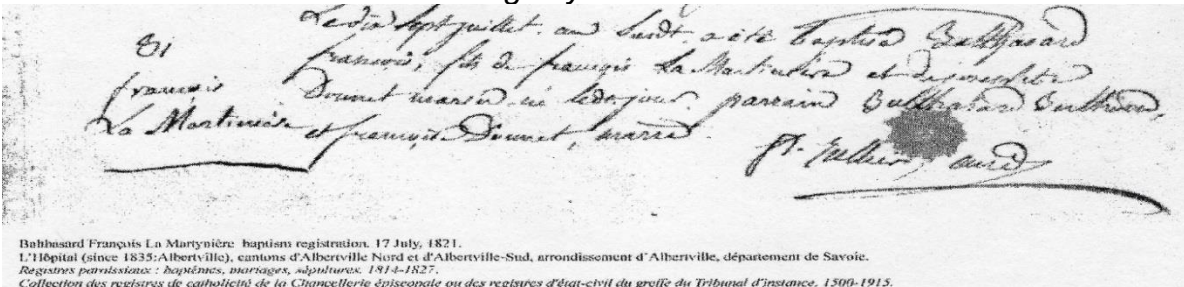 Le dix sept juillet an susdt a été baptisé Balthasard
81 françois, fils de françois La Martinière et de
françois Donnet mariés né ledt jour. parrain Balthasard
La Martinière et françoise Donnet, marre.
curé
Balthasard François La Martynière baptism registration. 17 July, 1821.
L'Hôpital (since 1835:Albertville), cantons d'Albertville Nord et d'Albertville-Sud, arrondissement d'Albertville, département de Savoie.
Registres paroissiaux : baptêmes, mariages, sépultures. 1814-1827.
Collection des registres de catholicité de la Chancellerie épiscopale ou des registres d'état-civil du greffe du Tribunal d'instance. 1500-1915.